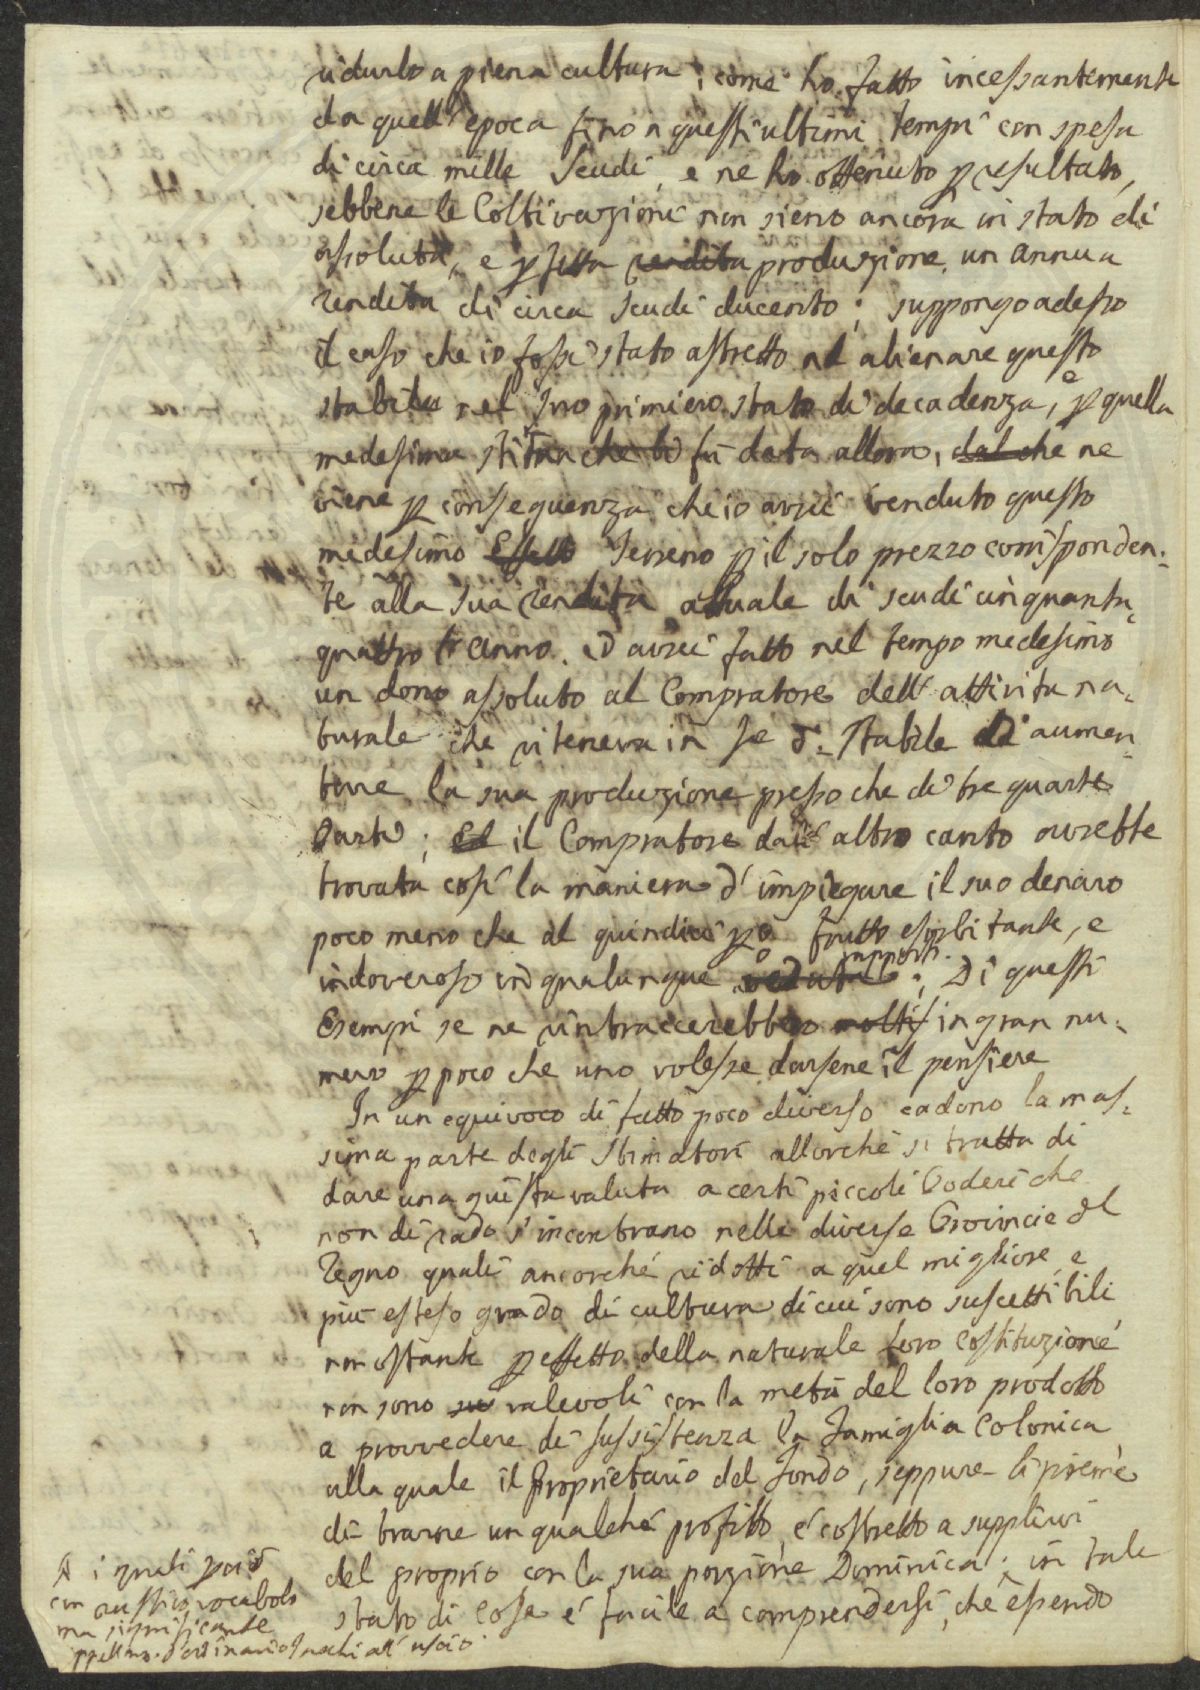 ridurlo a piena cultura, come ho fatto incessantemente
da quell'epoca fino a questi ultimi tempi con spesa
di circa mille Scudi, e ne ho ottenuto p resultato,
sebbene le Coltivazioni non sieno ancora in stato di
assoluta, e pfetta rendita produzione, un annua
rendita di circa Scudi ducento; suppongo adesso
il caso che io fossi stato astretto ad alienare questo
stabile nel suo primiero stato di decadenza, e p quella
medesima stima che li fù data allora, dal che ne
viene p conseguenza che io avrei venduto questo
medesimo Effetto Terreno p il solo prezzo corrisponden-
te alla sua rendita attuale di scudi cinquanta
quattro anno, ed avrei fatto nel tempo medesimo
un dono assoluto al Compratore dell'attività na-
turale che riteneva in se d.o stabile di aumen-
tare la sua produzione presso che di tre quarte
Parti; Ed il Compratore dall'altro canto avrebbe
trovata così la maniera d'impiegare il suo denaro
poco meno che al quindici p o/o frutto esorbitante, e
indoveroso in qualunque veduta rapporti; Di questi
Esempi se ne rintraccerebbero molti in gran nu-
mero p poco che uno volesse darsene il pensiere
In un equivoco di fatto poco diverso cadono la mas-
sima parte degli Stimatori allorché si tratta di
dare una giusta valuta a certi piccoli Poderi che
non di rado s'incontrano nelle diverse Provincie del
Regno quali ancorché ridotti a quel migliore, e
più esteso grado di cultura di cui sono suscettibili
non ostante p effetto della naturale loro costituzione
non sono valevoli con la metà del loro prodotto
a provvedere di sussistenza la Famiglia Colonica
alla quale il Proprietario del Fondo, seppure li preme
di trarne un qualche profitto, è costretto a supplirvi
del proprio con la sua porzione Dominica; in tale
stato di Cose è facile a comprendersi, che essendo
A i quali poi
con rustico vocabolo
ma significante
appellano d'ordinario all'uscio